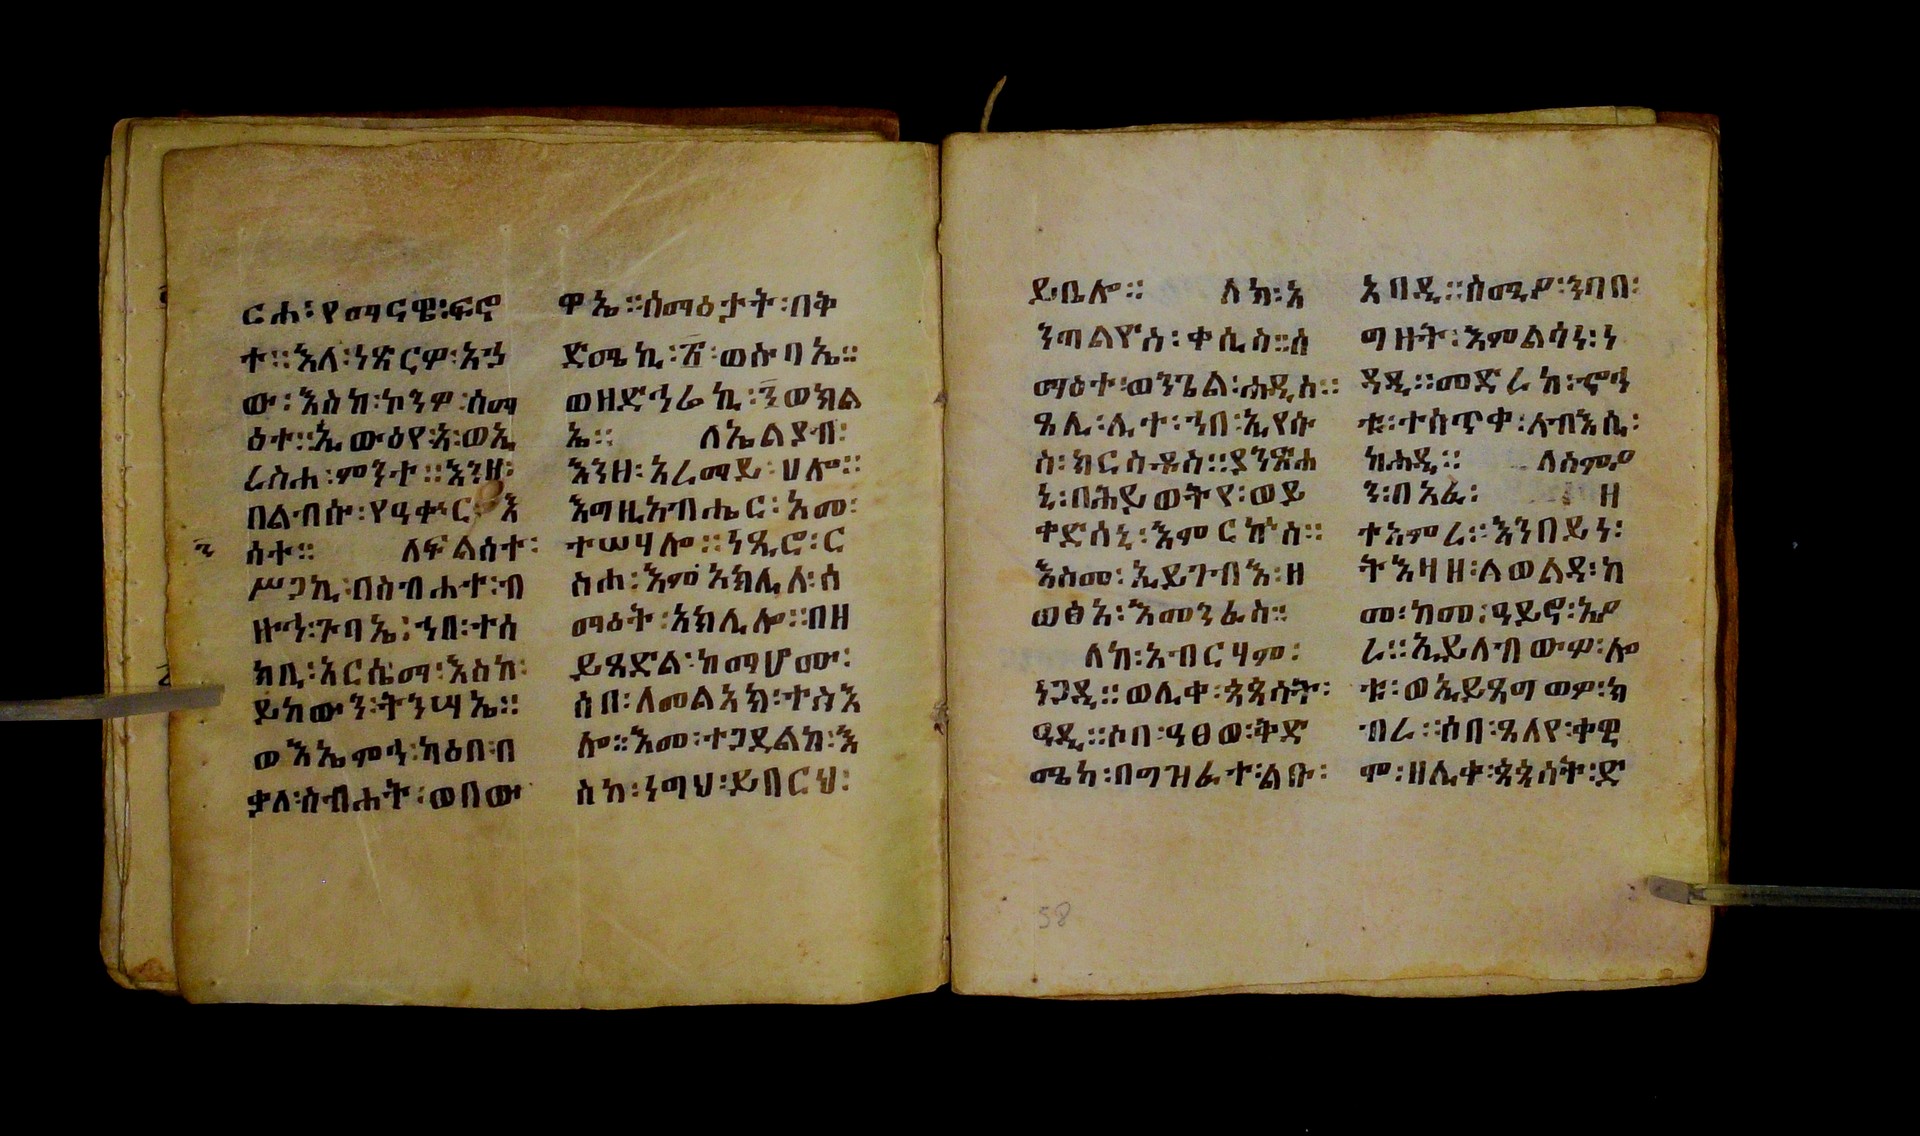 ርሐ፡የማናዊ፡ፍኖ
ተ፡፡እለ፡ነጽርዎ፡አኃ
ው፡እስከ፡ኮንዎ፡ሰማ
ዕተ፡፡ኢውዕየ፡ጾ፡ወኢ
ረስሐ፡ምንተ፡፡እንዘ፡
በልብሱ፡የዓቀኍር፡እ
ሰተ፡፡ ለፍልሰተ፡
ሥጋኪ፡በስብሐተ፡ብ
ዙኅ፡ጉባኤ፡ኀበ፡ተሰ
ክቢ፡አርሴማ፡እስከ፡
ይከውን፡ትንሣኤ፡፡
ወእኤምኅ፡ካዕበ፡በ
ቃለ፡ስብሐት፡ወበው
ዋኤ፡፡ሰማዕታት፡በቅ
ድሜኪ፡፳፡ወሱባኤ፡፡
ወዘድኅሬኪ፡፶ወክል
ኤ፡፡ ለኤልያብ፡
እንዘ፡አረማይ፡ሀሎ፡፡
እግዚአብሔር፡አመ፡
ተሠሃሎ፡፡ነጺሮ፡ር
ስሐ፡እም፡አክሊለ፡ሰ
ማዕት፡አክሊሎ፡፡በዘ
ይጼድል፡ከማሆሙ፡
ሰበ፡ለመልአክ፡ተስእ
ሎ፡፡እመ፡ተጋደልከ፡እ
ስከ፡ነግህ፡ይበርህ፡
ይቤሎ፡፡ ለከ፡አ
ንጣልዮስ፡ቀሲስ፡፡ሰ
ማዕተ፡ወንጌል፡ሐዲስ፡፡
ጸሊ፡ሊተ፡ኀበ፡ኢየሱ
ስ፡ክርስቶስ፡፡ያንጽሐ
ኒ፡በሕይወትየ፡ወይ
ቀድሰኒ፡እምርኵስ፡፡
እስመ፡ኢይገብእ፡ዘ
ወፅአ፡እመንፈስ፡፡
ለከ፡አብርሃም፡
ነጋዲ፡፡ወሊቀ፡ጳጳሳት፡
ዓዲ፡፡ሶበ፡ዓፀወ፡ቅድ
ሜከ፡በግዝፈተ፡ልቡ፡
አባዲ፡፡ስሚዖ፡ንባበ፡
ግዘት፡እምልሳነ፡ነ
ዳዲ፡፡መድረከ፡ኖኅ
ቱ፡ተሰጥቀ፡ለብእሲ፡
ከሐዲ፡፡ ለስምዖ
ን፡በአፈ፡ ዘ
ተአምረ፡፡እንበይነ፡
ትእዛዘ፡ለወልዳ፡ከ
መ፡ከመ፡ዓይኖ፡ኢዖ
ረ፡፡ኢይለብውዎ፡ሎ
ቱ፡ወኢይጸግወዎ፡ክ
ብረ፡፡ሰበ፡ጸለየ፡ቀዊ
ሞ፡ዘሊቀ፡ጳጳሳት፡ድ
58